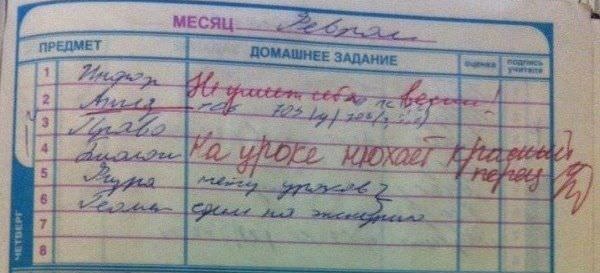 МЕСЯЦ Феврал
ПРЕДМЕТ ДОМАШНЕЕ ЗАДАНИЕ оценка подпись учителя
1 Инфор
Не умеет себя вести!
2 Англ
3 Право
4 Биологи На уроке нюхает красный перец
5 нету уроков
6 Геомет
7
8
ЧЕТВЕРГ